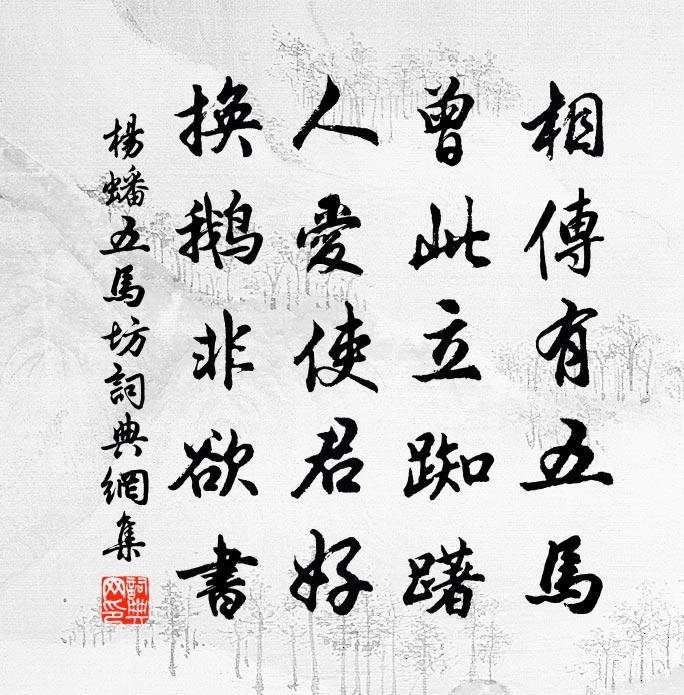 相傳有五馬
曾此立踟躇
人愛使君好
換鵝非欲書
楊蟠五馬坊詞典網集
詞典網印